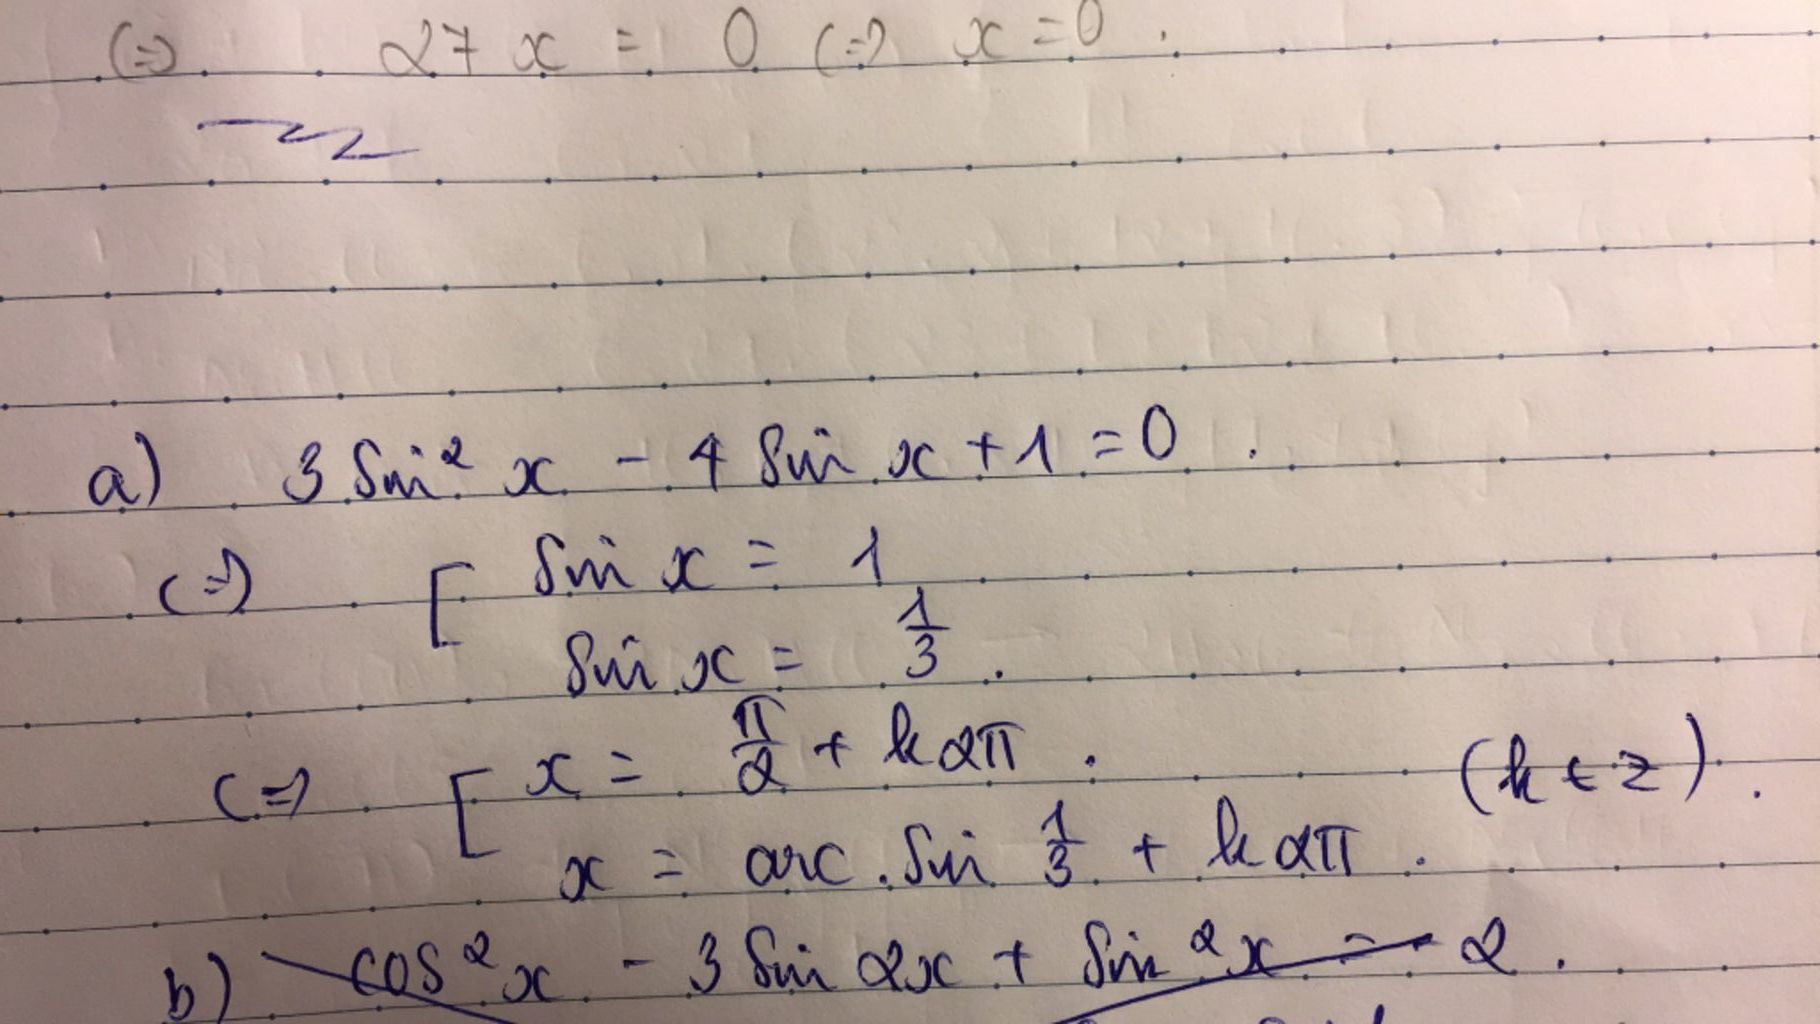 (=) 27x = 0 (=) x = 0.
a) 3 sin² x - 4 sin x + 1 = 0.
(=) [ sin x = 1
sin x = 1/3.
(=) [ x = π/2 + k2π. (k ∈ z).
x = arc.sin 1/3 + k2π.
b) cos² x - 3 sin 2x + sin² x = 2.